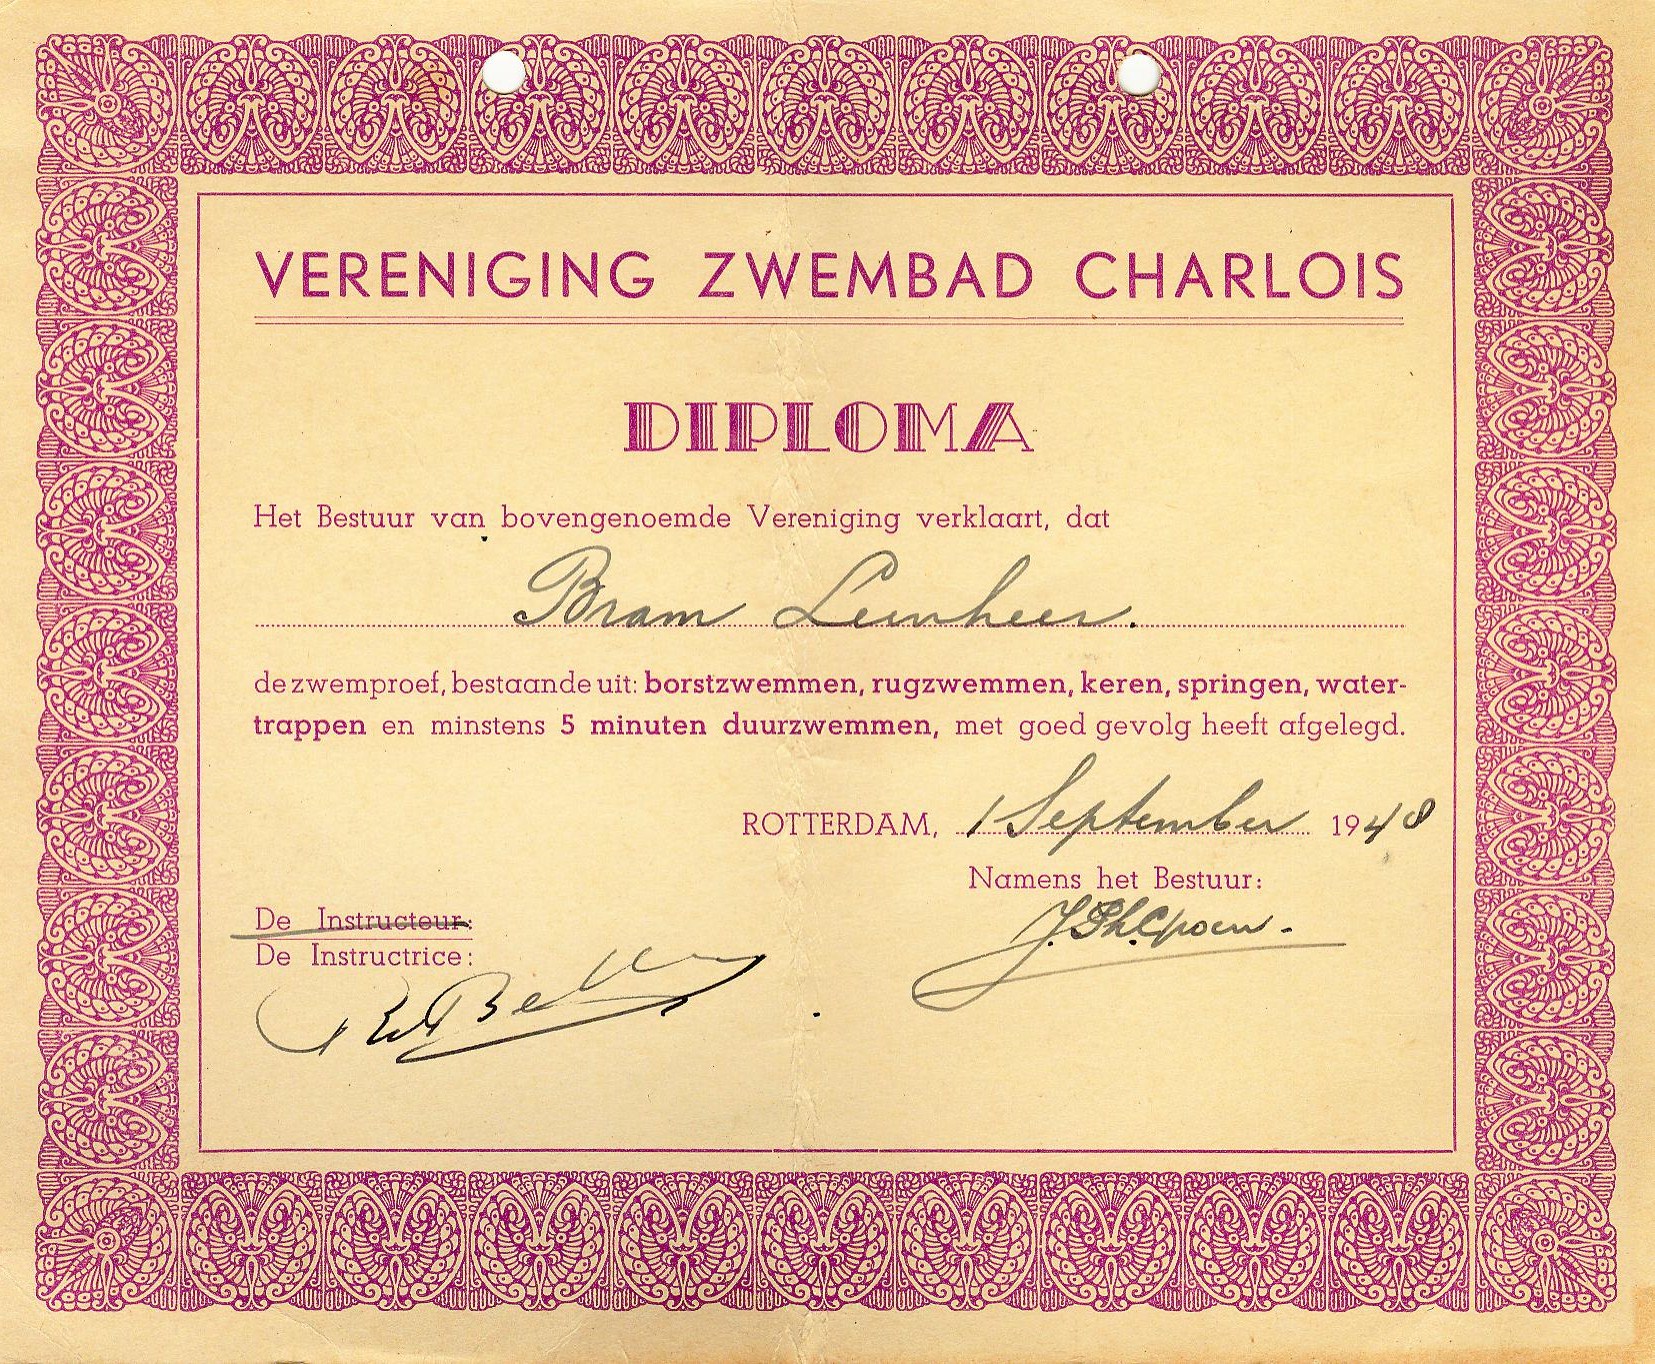 VERENIGING ZWEMBAD CHARLOIS
DIPLOMA
Het Bestuur van bovengenoemde Vereniging verklaart, dat
Bram Leenheer.
de zwemproef, bestaande uit: borstzwemmen, rugzwemmen, keren, springen, water-
trappen en minstens 5 minuten duurzwemmen, met goed gevolg heeft afgelegd.
ROTTERDAM, 1 September 1948
Namens het Bestuur:
De Instructeur:
De Instructrice: